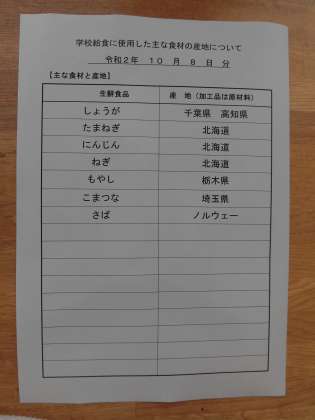 学校給食に使用した主な食材の産地について
令和2年 10 月 8 日 分
【主な食材と産地】
生鮮食品 産 地(加工品は原材料)
しょうが 千葉県 高知県
たまねぎ 北海道
にんじん 北海道
ねぎ 北海道
もやし 栃木県
こまつな 埼玉県
さば ノルウェー